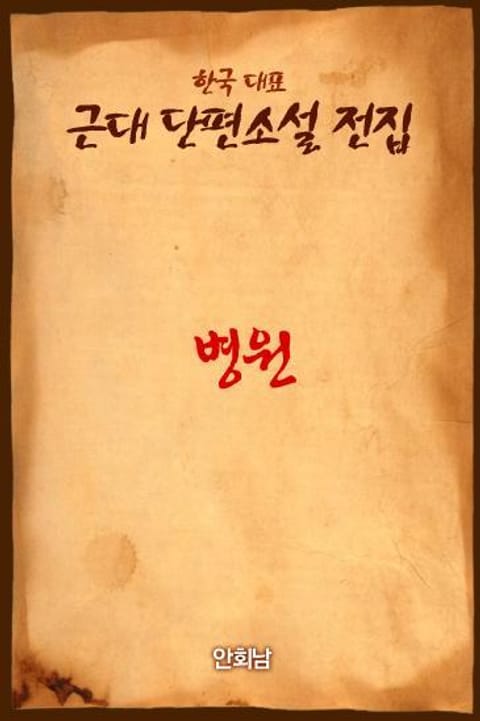 한국 대표
근대 단편소설 전집
병원
안회남